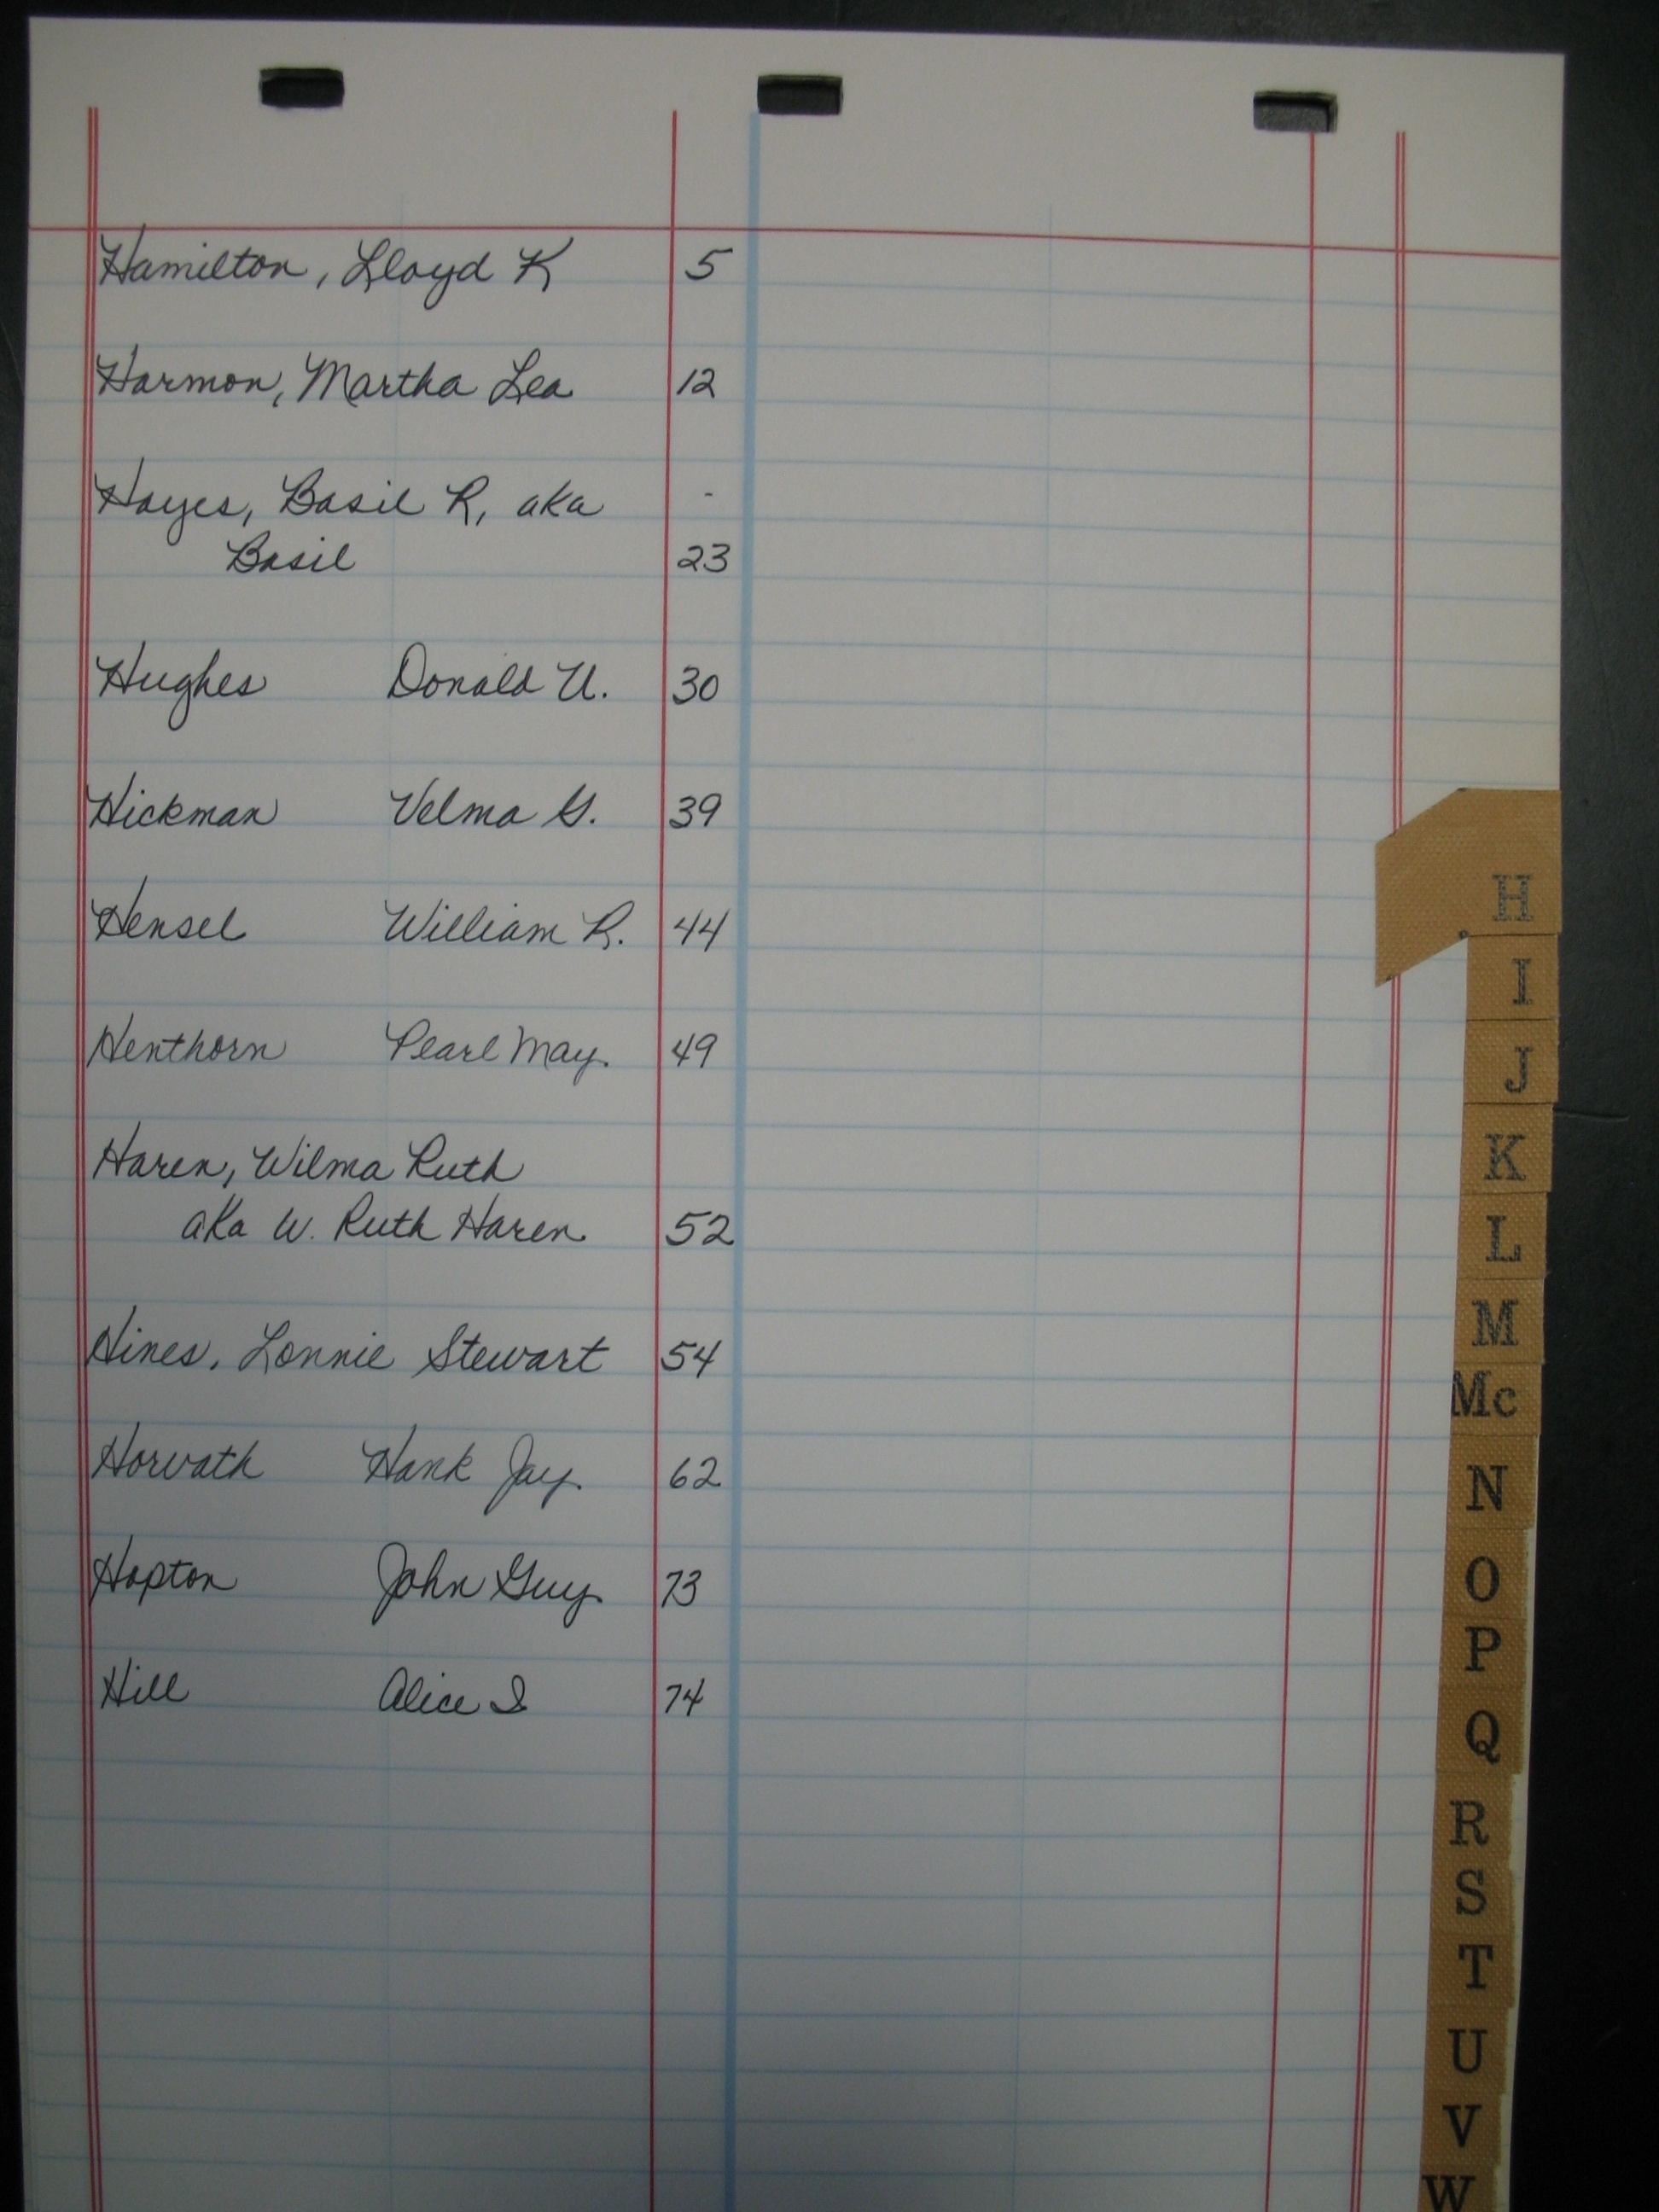 Hamilton, Lloyd K 5
Harmon, Martha Lea 12
Hayes, Basil R, aka -
Basil 23
Hughes Donald U. 30
Hickman Velma G. 39
Hensel William R. 44
Henthorn Pearl May 49
Haren, Wilma Ruth
aka W. Ruth Haren 52
Hines, Lonnie Stewart 54
Horvath Hank Jay 62
Hopton John Guy 73
Hill Alice I 74
H
I
J
K
L
M
Mc
N
O
P
Q
R
S
T
U
V
W